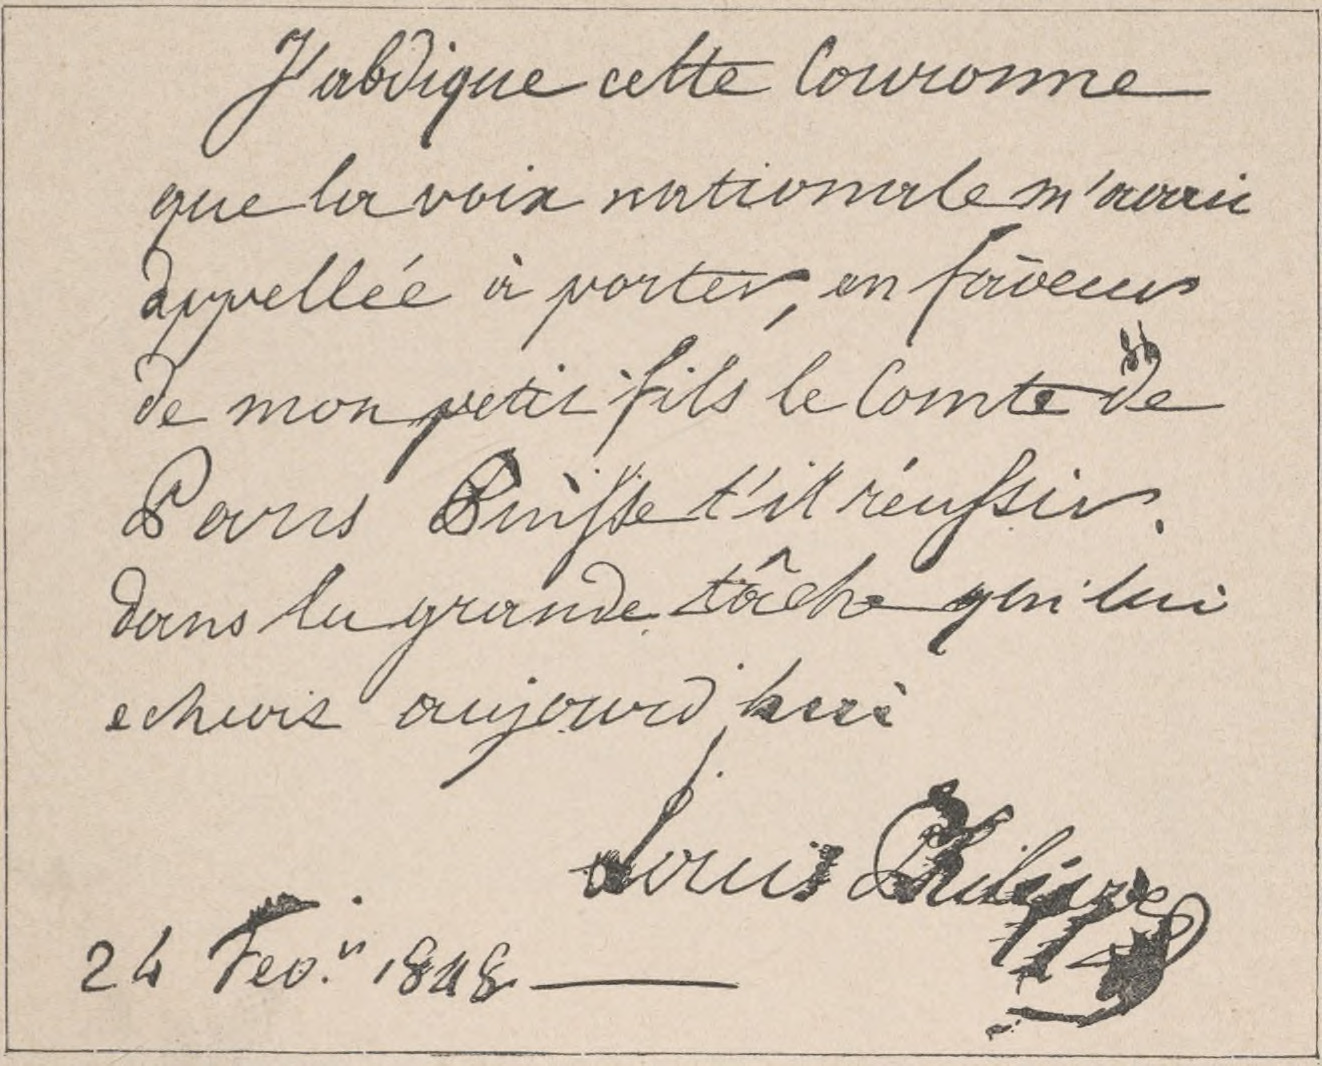 J'abdique cette Couronne
que la voix nationale m'avait
appellée à porter, en faveur
de mon petit fils le Comte de
Paris Puisse t'il réussir.
dans la grande tâche qui lui
echoit aujourd'hui
Louis Philippe
24 Fevr. 1848